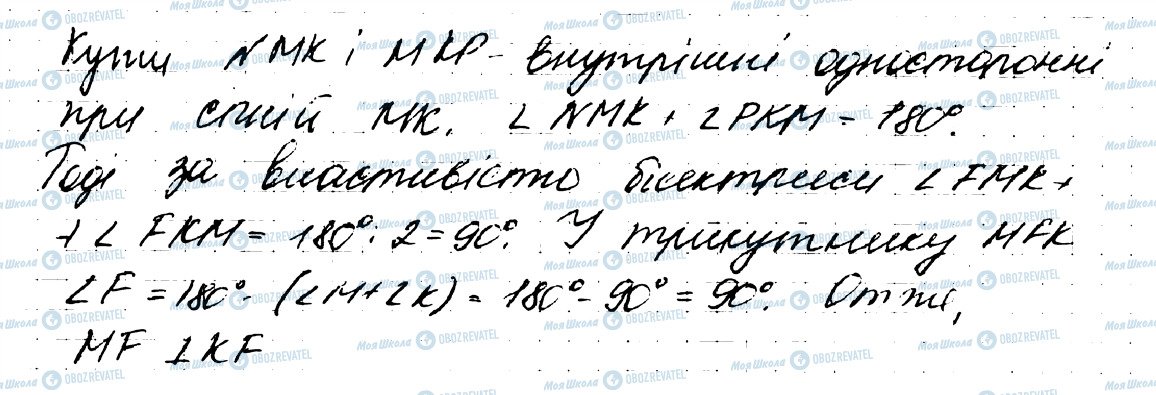 Кути NMK і MKP - внутрішні односторонні
при січній MK. ∠NMK + ∠PKM = 180°.
Тоді за властивістю бісектриси ∠FMK +
+ ∠FKM = 180° : 2 = 90°. У трикутнику MFK
∠F = 180° - (∠M + ∠K) = 180° - 90° = 90°. Отже,
MF ⊥ KF
Моя Школа OBOZREVATEL